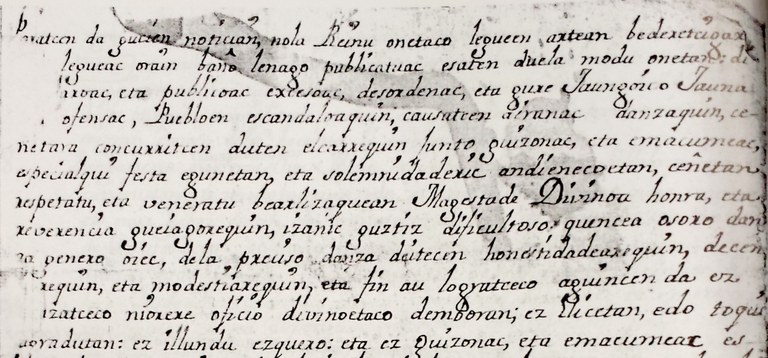 paratcen da gucien notician, nola Reinu onetaco legueen artean bederetcigar
legueac orain baño lenago publicatuac esaten duela modu onetan: di
irvac, eta publicoac excesoac, desordenac, eta gure Jaungoico Jauna
ofensac, Puebloen escandaloaquin, causatcen diranac danzaquin, ce-
netara concurritcen duten elcarrequin junto guizonac, eta emacumeac,
especialqui festa egunetan, eta solemnidaderic andienecoetan, ceñetan
respetatu, eta veneratu bearlizaquean Magestade Divinoa honra, eta
reverencia gueiagorequin, izanic guztiz dificultoso quincea osoro dan
za genero oiec, dela preciso danza ditecen honestidadearequin, decen
requin, eta modestiarequin, eta fin au logratceco aguincen da ez
izatceco niorere oficio divinoetaco demboran; ez Elicetan, edo toqui
sagradutan: ez illundu ezquero: eta ez guizonac, eta emacumeac es-